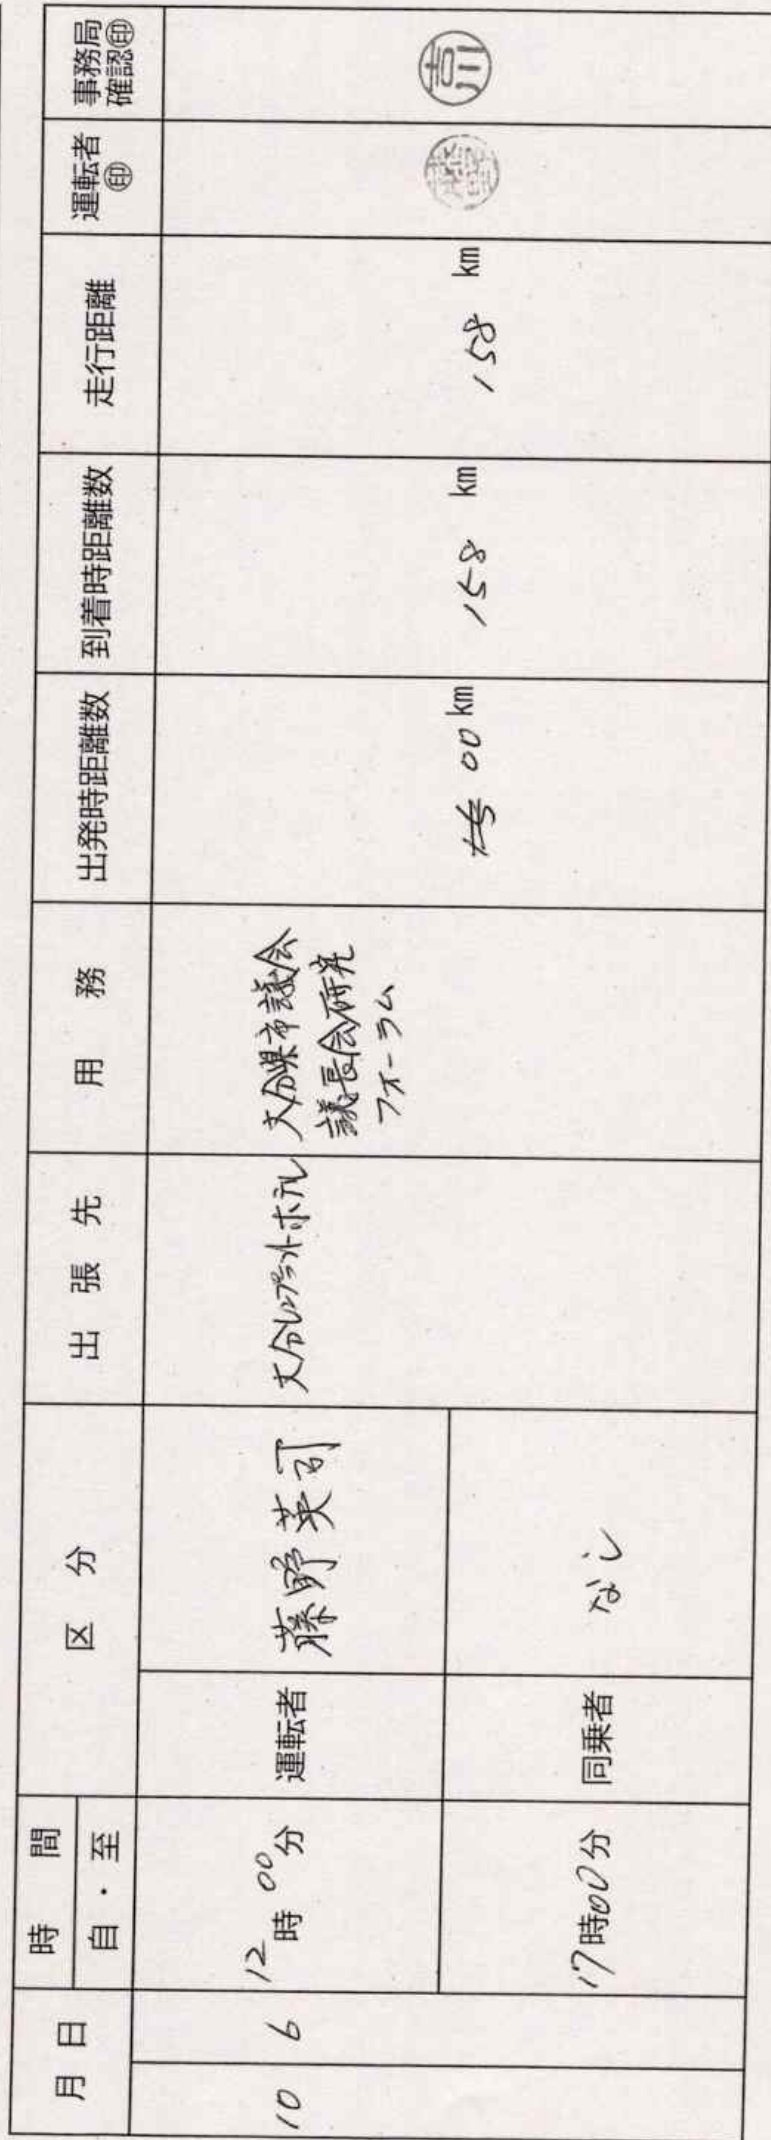 月 日
時 間
自・至
区 分
出 張 先
用 務
出発時距離数
到着時距離数
走行距離
運転者
㊞
事務局
確認㊞
10 6
12時00分
運転者
藤野英司
大分レンブラントホテル
大分県市議会
議長会研究
フォーラム
00 km
158 km
158 km
吉川
17時00分
同乗者
なし